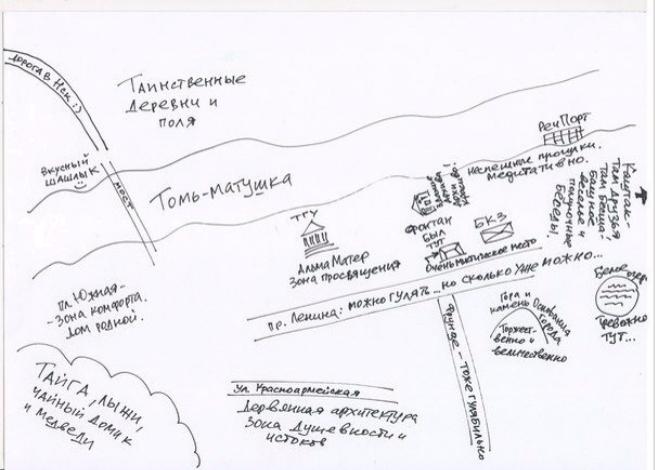 Дорога в Нск :)
Таинственные
деревни и
поля
Вкусный
шашлык
мост
Томь-матушка
РечПорт
Неспешные прогулки.
Медитативно.
Каштак-
там друзья!
Там вещь!
Башное
веселье и
полуночные
беседы!
ТГУ
Альма Матер
Зона просвящения
Фонтан
был
тут
БКЗ
Очень мистическое место
пр. Ленина: можно гулять... но сколько уже можно...
Белое озеро
Тревожно
тут...
Гора и
камень Основания
города
Торжест-
венно и
величественно
Фрунзе - тоже гулябильно
пл. Южная-
- Зона комфорта.
Дом родной.
Тайга, лыжи,
чайный домик
и медведи
ул. Красноармейская
Дервянная архитектура
Зона душевности и
истоков